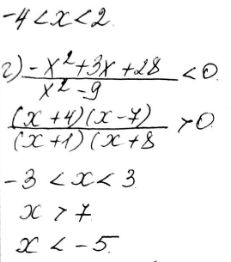 -4 < x < 2.
г) (-x²+3x+28)/(x²-9) < 0.
((x+4)(x-7))/((x+1)(x+8) > 0
-3 < x < 3
x > 7
x < -5.